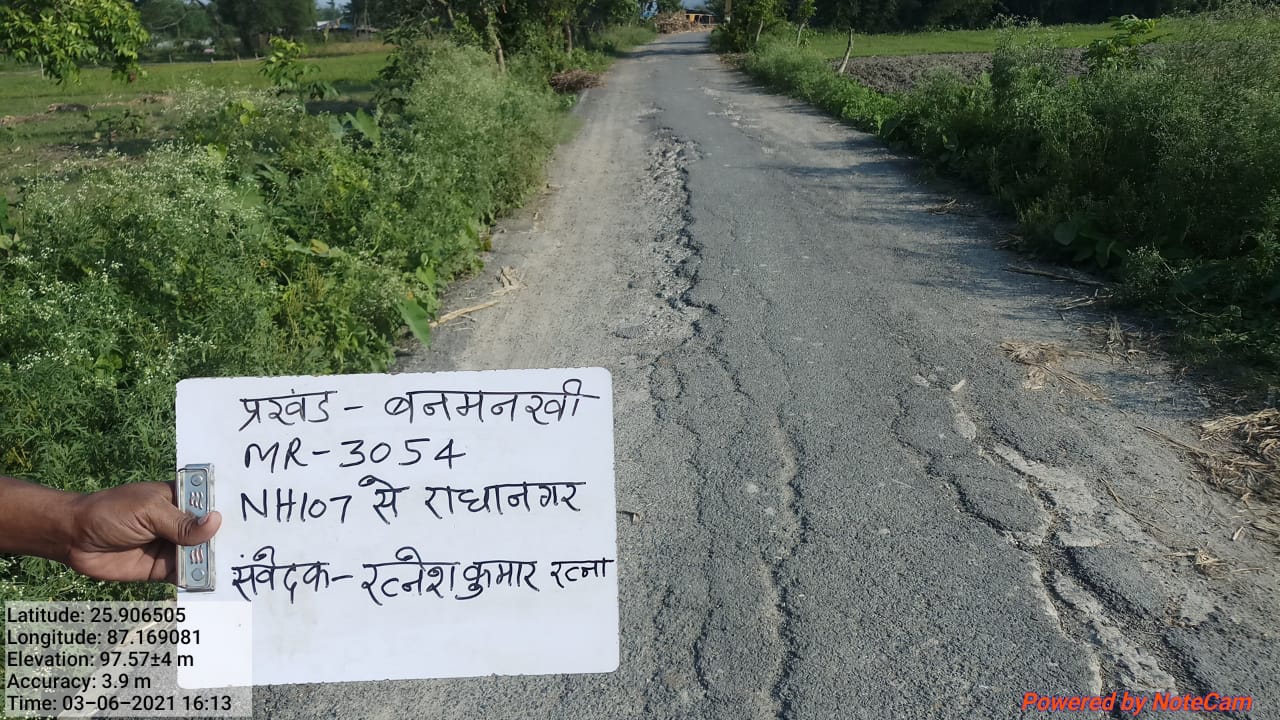 प्रखंड - बनमनखी
MR-3054
NH107 से राधानगर
संवेदक- रत्नेश कुमार रत्ना
Latitude: 25.906505
Longitude: 87.169081
Elevation: 97.57±4 m
Accuracy: 3.9 m
Time: 03-06-2021 16:13
Powered by NoteCam